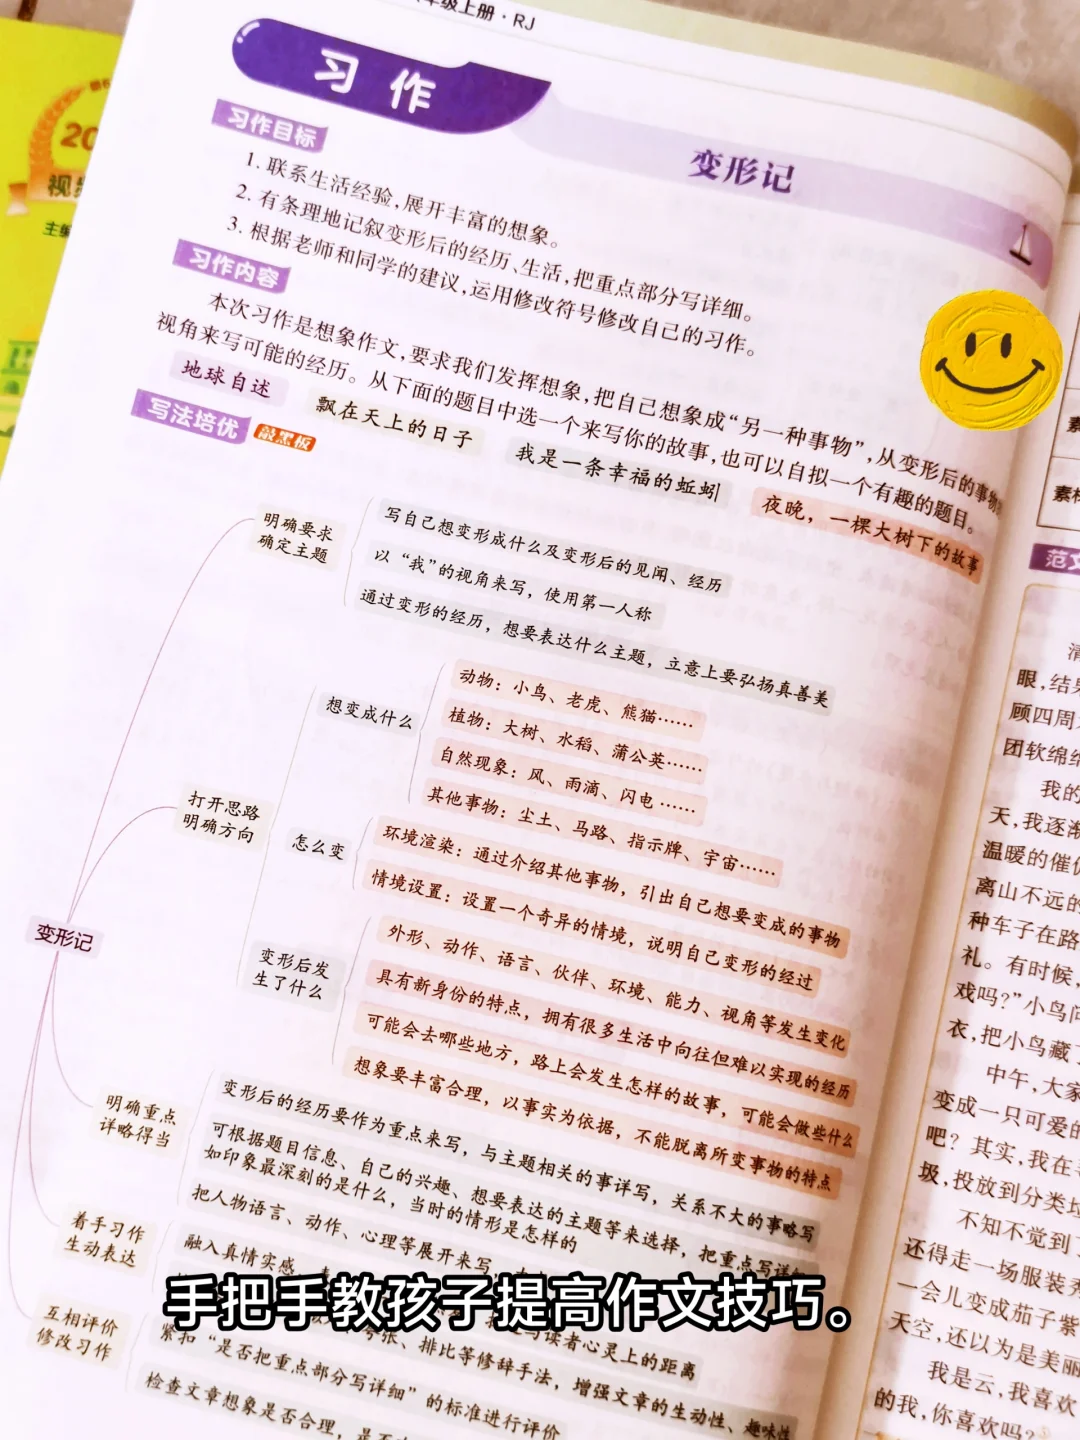 级上册·RJ
习作
变形记
习作目标
1. 联系生活经验,展开丰富的想象。
2. 有条理地记叙变形后的经历、生活,把重点部分写详细。
3. 根据老师和同学的建议,运用修改符号修改自己的习作。
习作内容
本次习作是想象作文,要求我们发挥想象,把自己想象成“另一种事物”,从变形后的事物
视角来写可能的经历。从下面的题目中选一个来写你的故事,也可以自拟一个有趣的题目。
地球自述
飘在天上的日子
我是一条幸福的蚯蚓
夜晚，一棵大树下的故事
写法培优
敲黑板
变形记
明确要求
确定主题
写自己想变形成什么及变形后的见闻、经历
以“我”的视角来写，使用第一人称
通过变形的经历，想要表达什么主题，立意上要弘扬真善美
打开思路
明确方向
想变成什么
动物：小鸟、老虎、熊猫……
植物：大树、水稻、蒲公英……
自然现象：风、雨滴、闪电……
其他事物：尘土、马路、指示牌、宇宙……
怎么变
环境渲染：通过介绍其他事物，引出自己想要变成的事物
情境设置：设置一个奇异的情境，说明自己变形的经过
变形后发
生了什么
外形、动作、语言、伙伴、环境、能力、视角等发生变化
具有新身份的特点，拥有很多生活中向往但难以实现的经历
可能会去哪些地方，路上会发生怎样的故事，可能会做些什么
想象要丰富合理，以事实为依据，不能脱离所变事物的特点
明确重点
详略得当
变形后的经历要作为重点来写，与主题相关的事详写，关系不大的事略写
可根据题目信息、自己的兴趣、想要表达的主题等来选择，把重点写详
如印象最深刻的是什么，当时的情形是怎样的
着手习作
生动表达
把人物语言、动作、心理等展开来写
融入真情实感
与读者心灵上的距离
夸张、排比等修辞手法，增强文章的生动性、趣味性
互相评价
修改习作
紧扣“是否把重点部分写详细”的标准进行评价
检查文章想象是否合理，是否
手把手教孩子提高作文技巧。
20
视频
主编
素
素材
范文
清
眼,结果
顾四周
团软绵绵
我的
天,我逐渐
温暖的催
离山不远的
种车子在路
礼。有时候,
戏吗?”小鸟问
衣,把小鸟藏
中午,大家
变成一只可爱的
吧？其实,我在
圾,投放到分类垃
不知不觉到了
还得走一场服装秀
一会儿变成茄子紫
天空,还以为是美丽
我是云,我喜欢
的我,你喜欢吗?